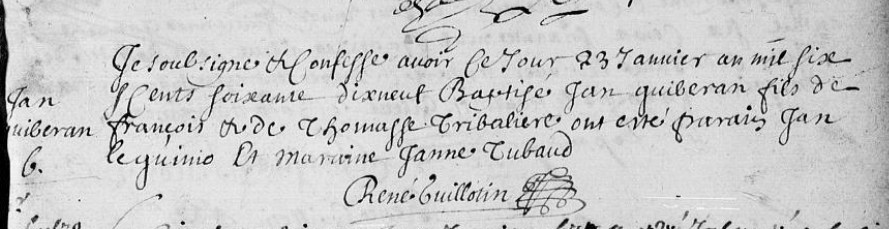 Je soubsigne & Confesse avoir Ce Jour 23 Janvier an mil six
Jan
Cents soixante dixneuf Baptisé Jan guiberan fils de
guiberan
françois & de Thomasse Tribaliere ont esté parain Jan
6.
le guinio Et maraine Janne Tubaud
René Guillotin